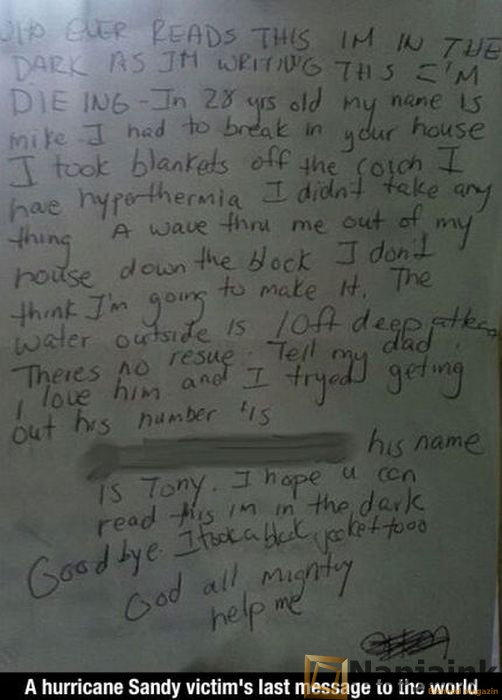 WHO EVER READS THIS IM IN THE
DARK AS IM WRITING THS I'M
DIEING - In 28 yrs old my name is
mike I had to break in your house
I took blankets off the coich I
have hyperthermia I didnt take any
thing A wave thru me out of my
house down the block I don't
think I'm going to make it. The
water outside is 10ft deep atleast
Theres no resue. Tell my dad
I love him and I tryed geting
out his number is
his name
is Tony. I hope u can
read this im in the dark
Good bye. I took a black jacket tooo
God all mighty
help me
A hurricane Sandy victim's last message to the world